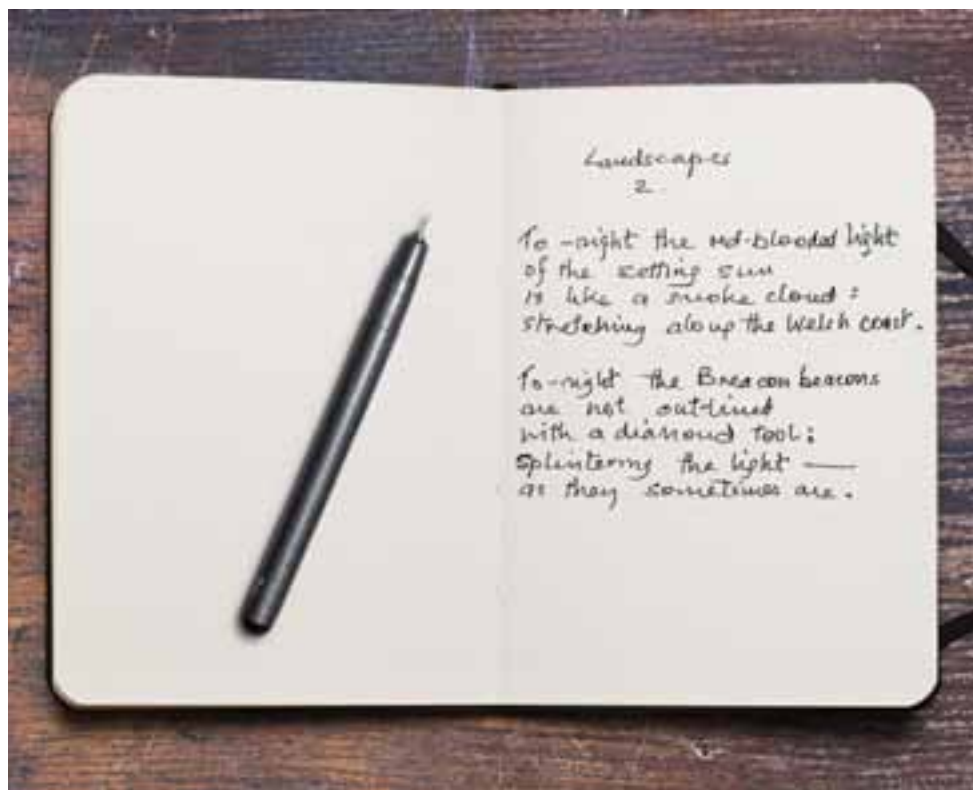 Landscapes
2
To-night the red-blooded light
of the setting sun
is like a smoke cloud:
stretching along the Welsh coast.
To-night the Breacon beacons
are not out-lined
with a diamond tool;
splintering the light —
as they sometimes are.